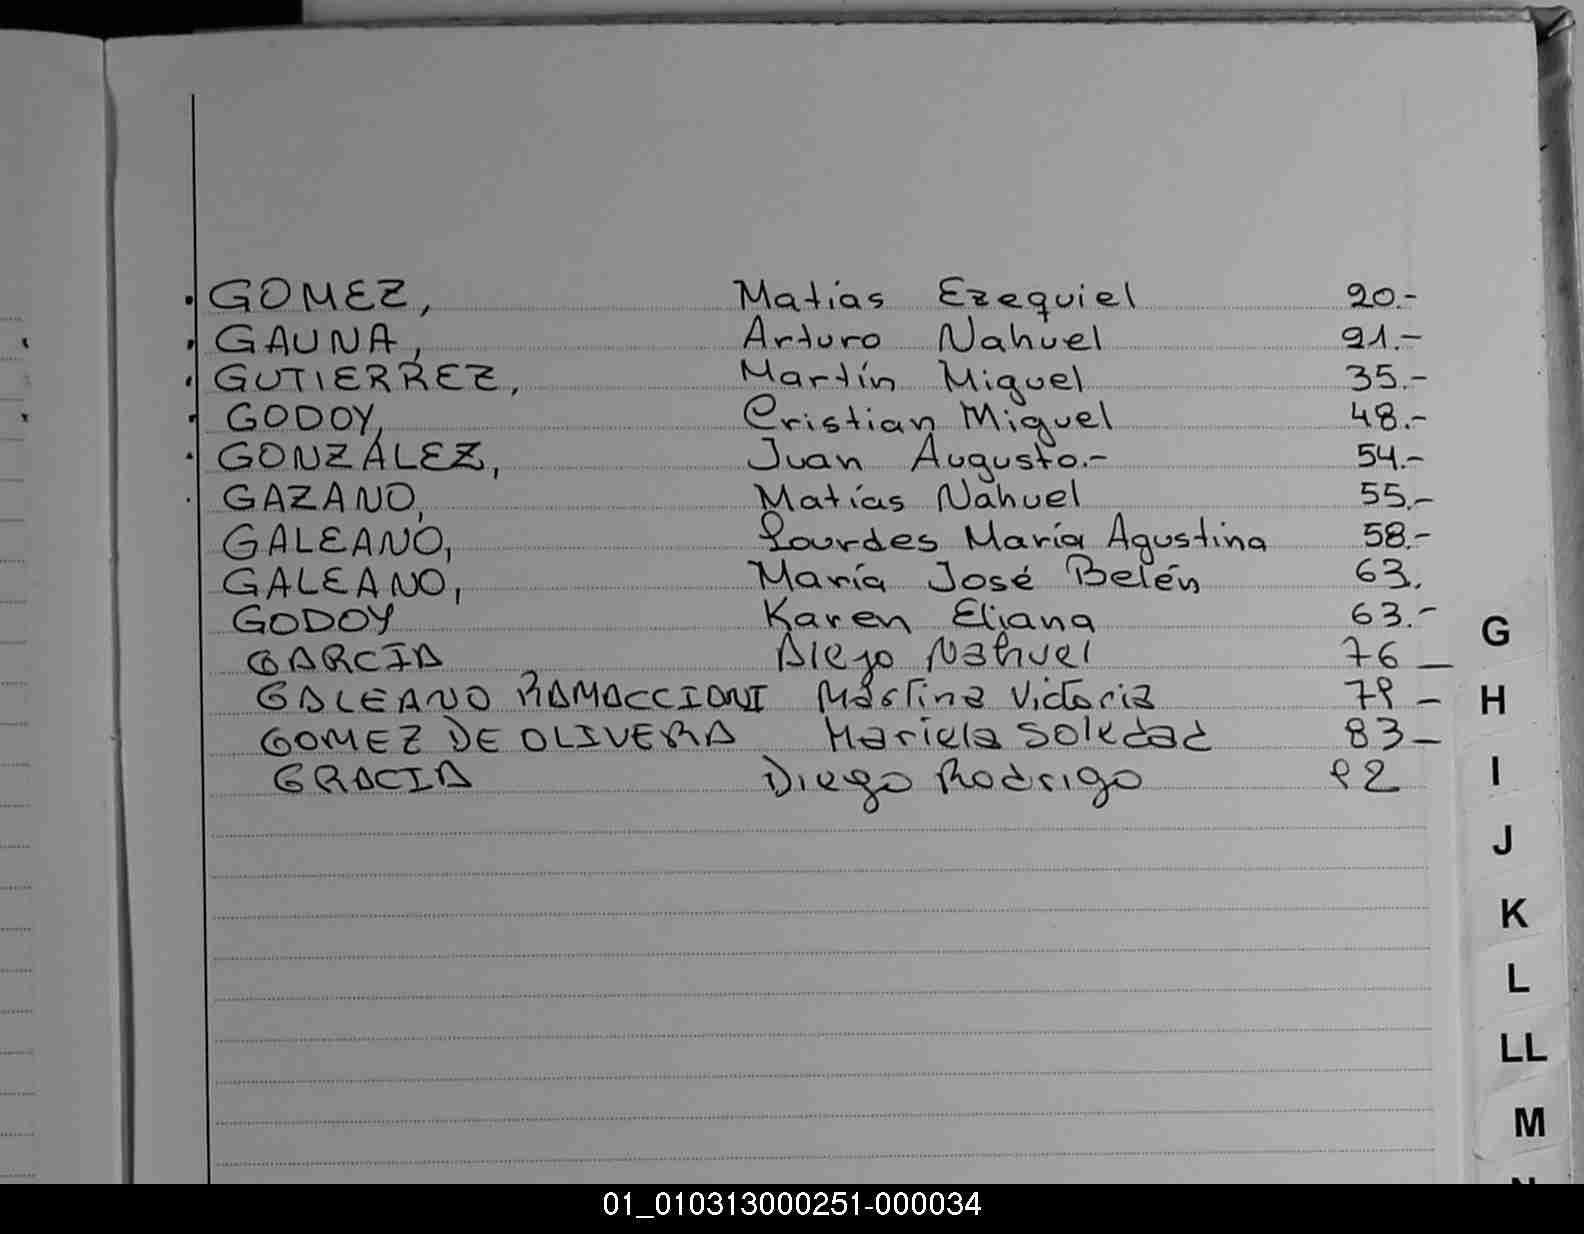 GOMEZ, Matías Ezequiel 20.-
GAUNA, Arturo Nahuel 21.-
GUTIERREZ, Martín Miguel 35.-
GODOY, Cristian Miguel 48.-
GONZÁLEZ, Juan Augusto.- 54.-
GAZANO, Matías Nahuel 55.-
GALEANO, Lourdes María Agustina 58.-
GALEANO, María José Belén 63.
GODOY Karen Eliana 63.-
GARCIA Diego Nahuel 76 -
GALEANO RAMACCIONI Martina Victoria 79 -
GOMEZ DE OLIVERA Mariela Soledad 83 -
GRACIA Diego Rodrigo 92
G
H
I
J
K
L
LL
M
01_010313000251-000034